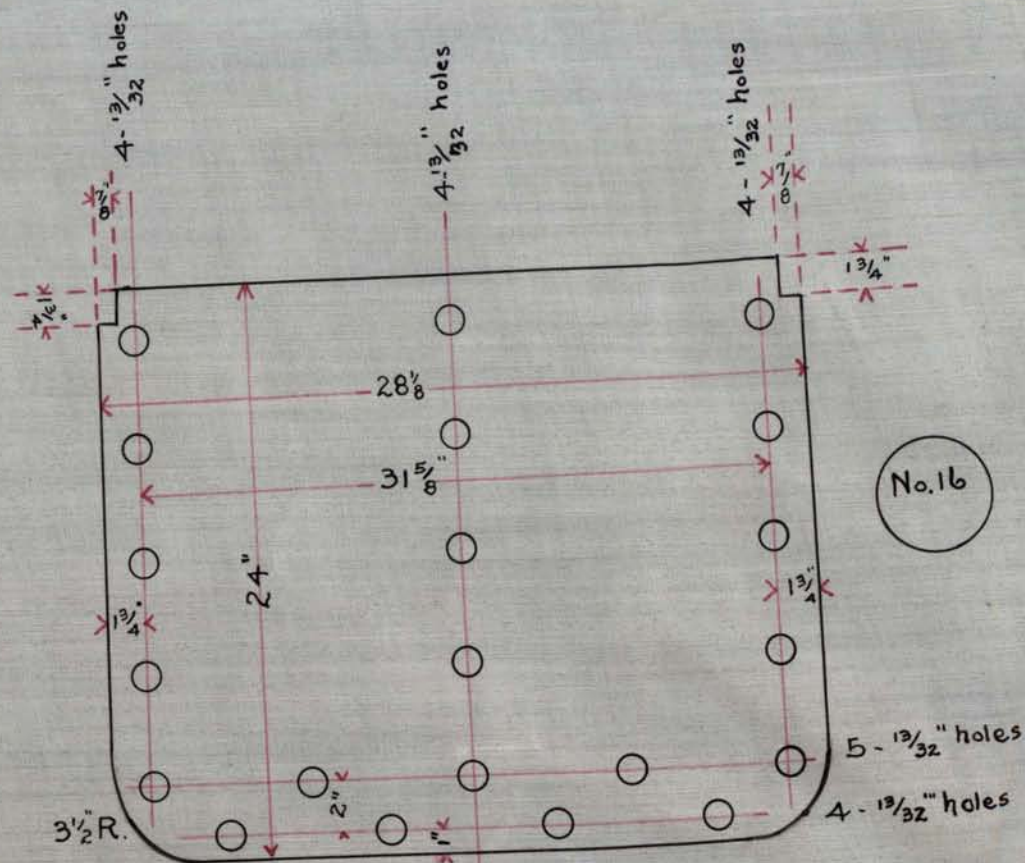 4 - 13/32" holes
4-13/32" holes
4 - 13/32" holes
7/8"
7/8"
1 3/4"
1 3/4"
28 1/8
31 5/8"
No.16
24"
1 3/4"
1 3/4"
5 - 13/32" holes
2"
4 - 13/32"' holes
3 1/2" R.
1"